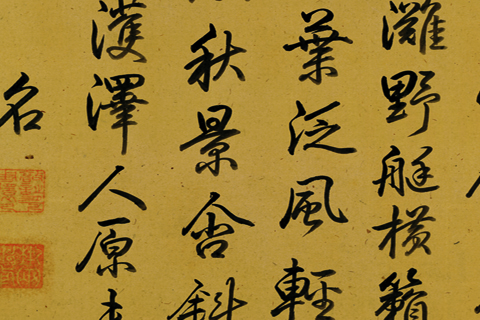 灘野艇橫籍
葉泛風輕
秋景舍斜
濩澤人原
名